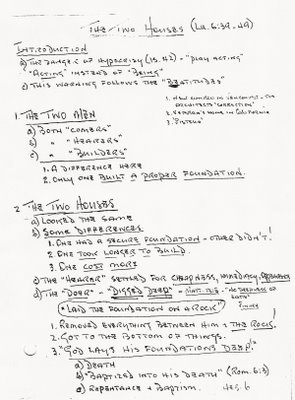 THE TWO HOUSES (LK. 6:39-49)
INTRODUCTION
a) THE DANGER OF HYPOCRISY (VS. 42) - "PLAY ACTING"
"ACTING" INSTEAD OF "BEING"
c) THIS WARNING FOLLOWS THE "BEATITUDES"
1. THE TWO MEN
a) BOTH "COMERS"
b) " "HEARERS"
c) " "BUILDERS"
1. A DIFFERENCE HERE
2. ONLY ONE BUILT A PROPER FOUNDATION.
2. THE TWO HOUSES
a) LOOKED THE SAME
b) SOME DIFFERENCES
1. ONE HAD A SECURE FOUNDATION - OTHER DIDN'T!
2. ONE TOOK LONGER TO BUILD.
3. ONE COST MORE
c) THE "HEARER" SETTLED FOR CHEAPNESS, IMMEDIACY,
d) THE "DOER" - "DIGGED DEEP" - "NO DEEPNESS OF EARTH"
"LAID THE FOUNDATION ON A ROCK"
1. REMOVED EVERYTHING BETWEEN HIM & THE ROCK!
2. GOT TO THE BOTTOM OF THINGS.
3. "GOD LAYS HIS FOUNDATIONS DEEP."
a) DEATH
b) "BAPTIZED INTO HIS DEATH" (ROM. 6:3)
c) REPENTANCE & BAPTISM. HEB. 6